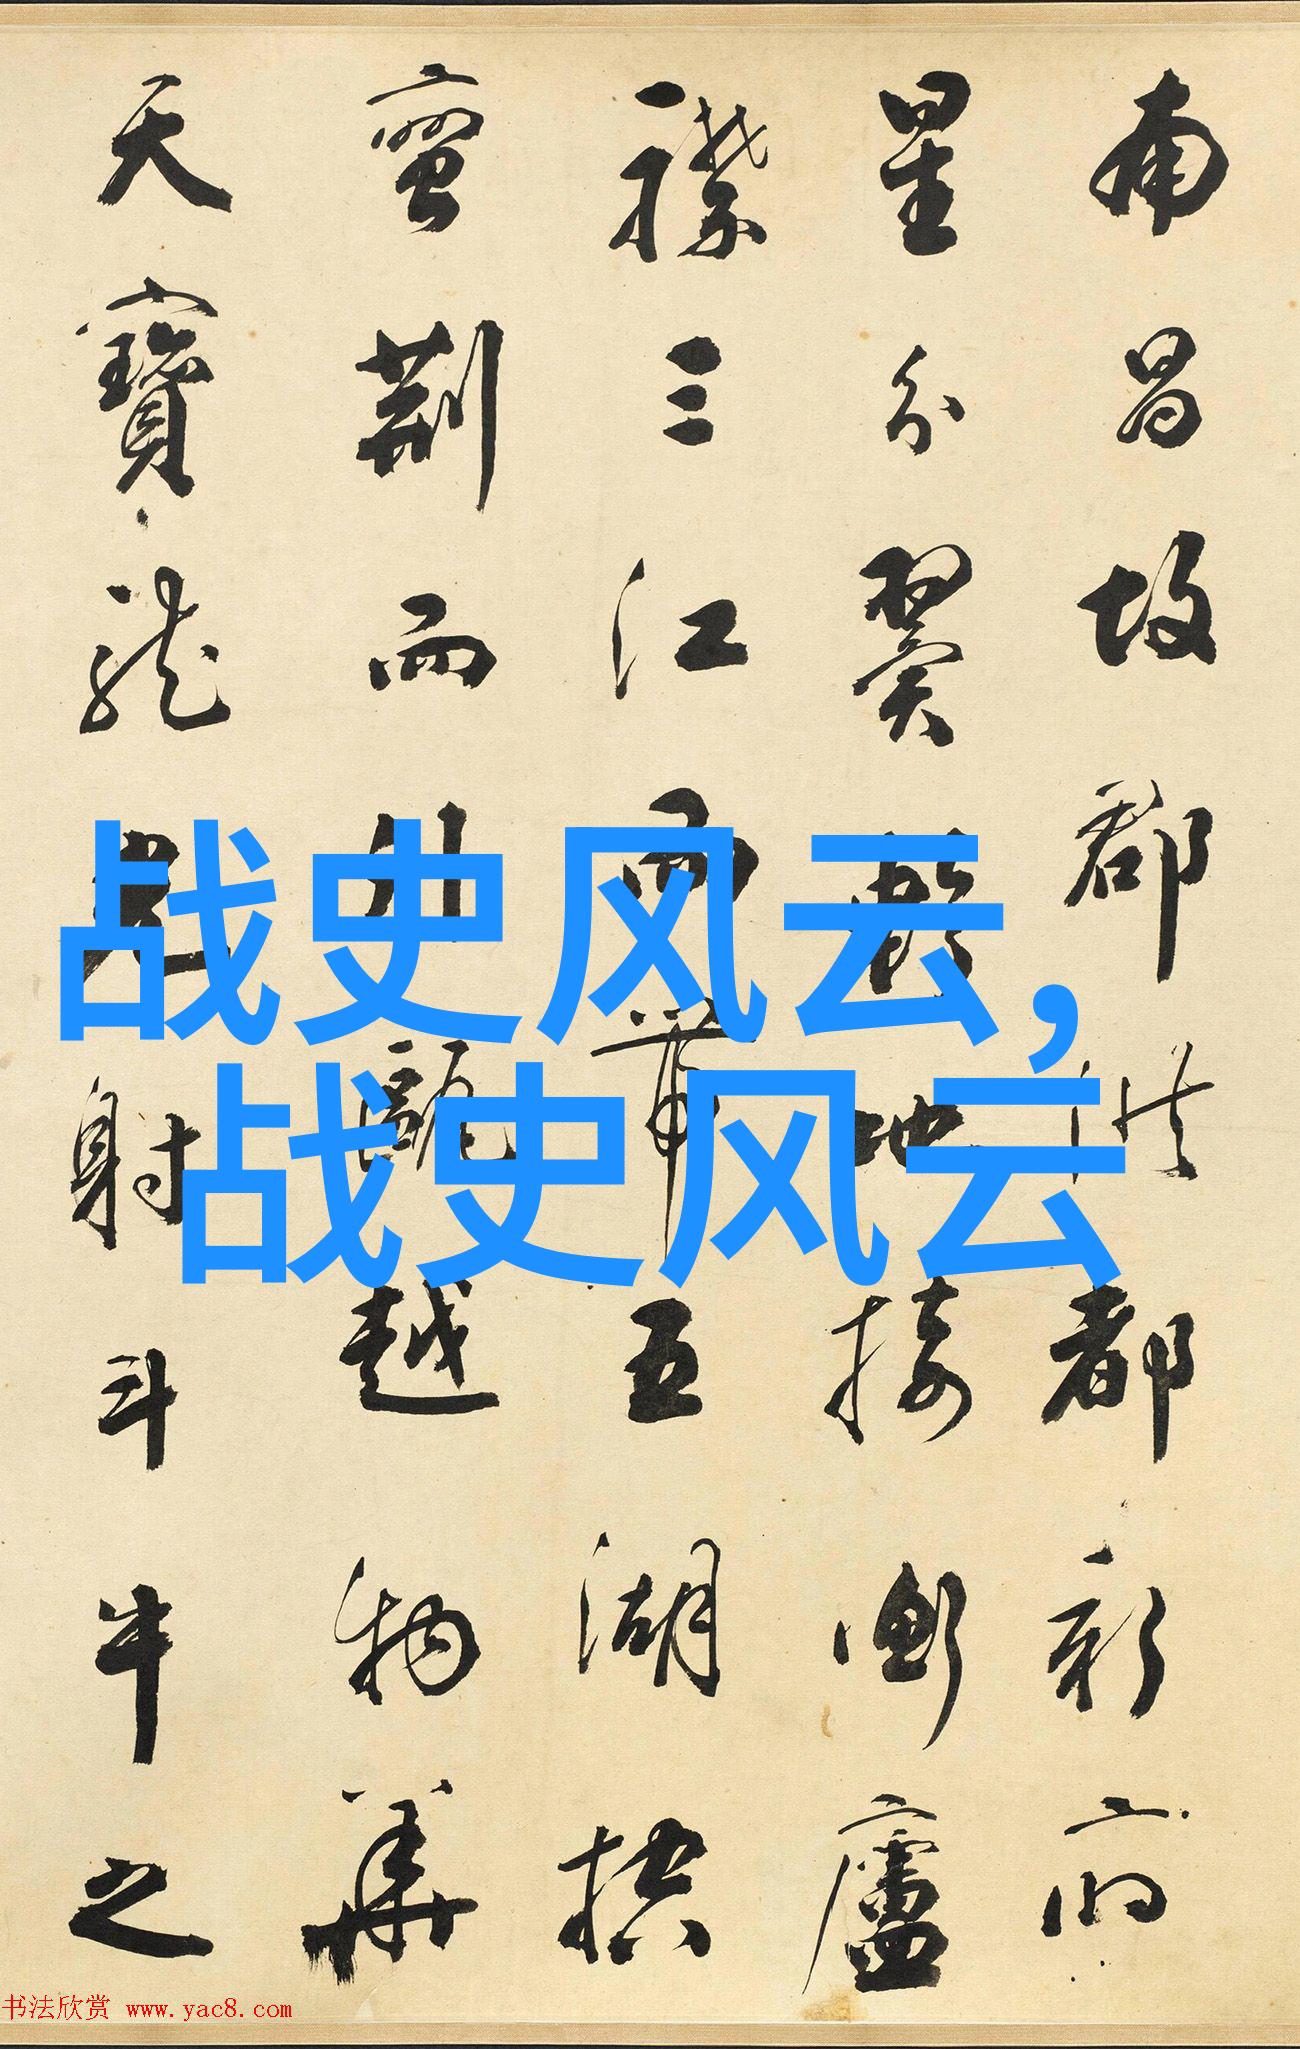 南昌故郡洪都新府
星分翼軫地接衡廬
襟三江而帶五湖控
蠻荊而引甌越物華
天寶龍光射斗牛之
战史风云，
战史风云
书法欣赏 www.yac8.com